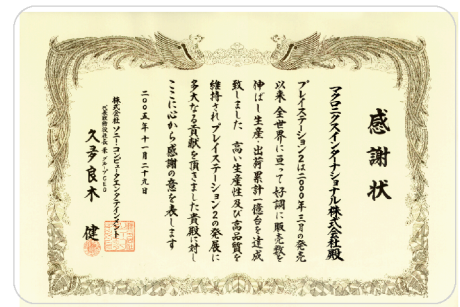 感謝状
マクロニクスインターナショナル株式会社殿
プレイステーション2は二〇〇〇年三月の発売
以来全世界に亘って好調に販売数を
伸ばし生産・出荷累計一億台を達成
致しました 高い生産性及び高品質を
維持されプレイステーション2の発展に
多大なる貢献を頂きました貴殿に対し
ここに心から感謝の意を表します
二〇〇五年十一月二十九日
株式会社 ソニー・コンピュータエンタテインメント
代表取締役社長 兼 グループCEO
久多良木 健